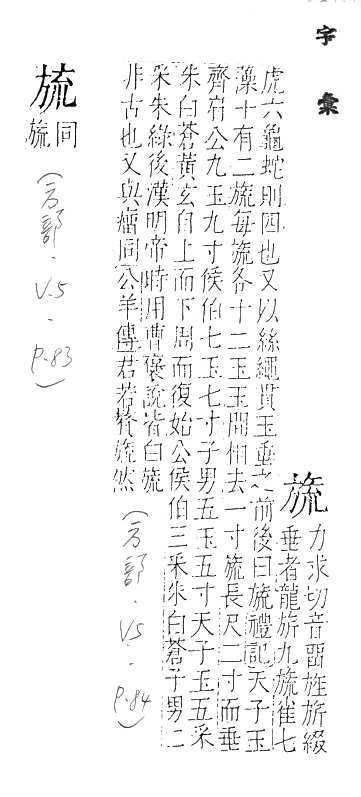 字彙
旒
力求切音畱旌旂綴
垂者龍旂九旒雀七
虎六龜蛇則四也又以絲繩貫玉垂之前後曰旒禮記天子玉
藻十有二旒每旒各十二玉玉間相去一寸旒長尺二寸而垂
齊肩公九玉九寸侯伯七玉七寸子男五玉五寸天子玉五采
朱白蒼黃玄自上而下周而復始公侯伯三采朱白蒼子男二
采朱綠後漢明帝時用曹褒說皆白旒
非古也又與瘤同公羊傳君若贅旒然
(方部. V5. p.84)
同
旒
(方部. V.5 p.83)